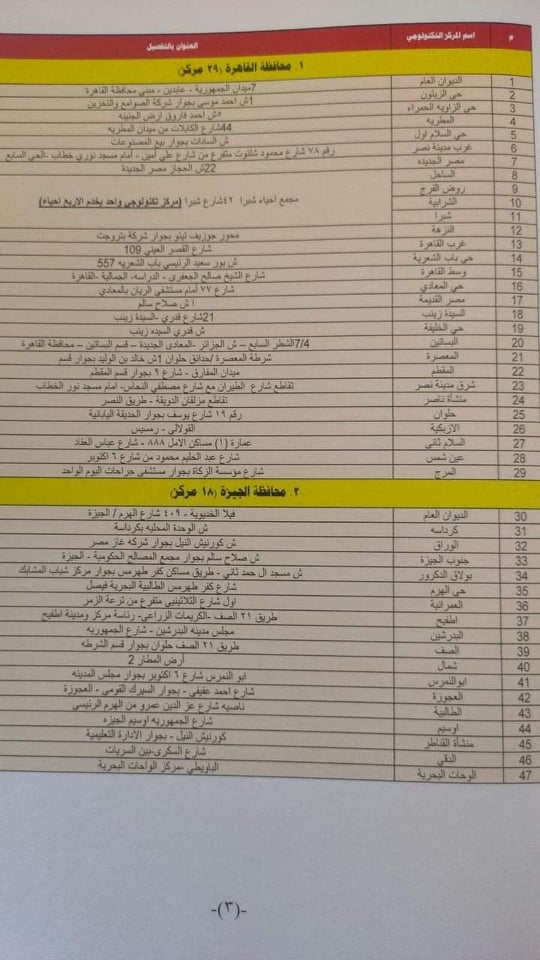 م	اسم المركز التكنولوجي	العنوان بالتفصيل
١. محافظة القاهرة (٢٩ مركز)
1	الديوان العام	7ميدان الجمهورية - عابدين - مبني محافظة القاهرة
2	حى الزيتون	1ش احمد موسى بجوار شركة الصوامع والتخزين
3	حي الزاويه الحمراء	٥ش احمد فاروق ارض الجنينه
4	المطريه	44شارع الكابلات من ميدان المطريه
5	حي السلام اول	ش السادات بجوار بيع المصنوعات
6	غرب مدينة نصر	رقم ٧٨ شارع محمود شلتوت متفرع من شارع علي أمين - أمام مسجد نوري خطاب -الحي السابع
7	مصر الجديده	22ش الحجاز مصر الجديدة
8	الساحل
9	روض الفرج
10	الشرابية	مجمع احياء شبرا ٤٢شارع شبرا (مركز تكنولوجي واحد يخدم الاربع احياء)
11	شبرا
12	النزهة	محور جوزيف تيتو بجوار شركة بتروجت
13	غرب القاهرة	شارع القصر العيني 109
14	حي باب الشعرية	ش بور سعيد الرئيسي باب الشعريه 557
15	وسط القاهرة	شارع الشيخ صالح الجعفرى - الدراسه- الجمالية -القاهرة
16	حي المعادي	شارع ٧٧ أمام مستشفى الريان بالمعادي
17	مصر القديمة	١ ش صلاح سالم
18	السيدة زينب	21شارع قدري -السيدة زينب
19	حي الخليفة	ش قدري السيده زينب
20	البساتين	7/4الشطر السابع – ش الجزائر -المعادى الجديدة – قسم البساتين – محافظة القاهرة
21	المعصرة	شرطة المعصرة /حدائق حلوان 1ش خالد بن الوليد بجوار قسم
22	المقطم	ميدان المفارق - شارع ٩ بجوار قسم المقطم
23	شرق مدينة نصر	تقاطع شارع الطيران مع شارع مصطفي النحاس- امام مسجد نور الخطاب
24	منشأة ناصر	تقاطع مزلقان الدويقة - طريق النصر
25	حلوان	رقم ١٩ شارع يوسف بجوار الحديقة اليابانية
26	الازبكية	القولالي - رمسيس
27	السلام ثانى	عمارة (١) مساكن الامل ٨٨٨ - شارع عباس العقاد
28	عين شمس	شارع عبد الحليم محمود من شارع ٦ اكتوبر
29	المرج	شارع مؤسسة الزكاة بجوار مستشفى جراحات اليوم الواحد
٢. محافظة الجيزة (١٨ مركز)
30	الديوان العام	فيلا الخديوية - ٤٠٩ شارع الهرم / الجيزة
31	كرداسه	ش الوحدة المحليه بكرداسة
32	الوراق	ش كورنيش النيل بجوار شركه غاز مصر
33	جنوب الجيزة	ش صلاح سالم بجوار مجمع المصالح الحكومية - الجيزة
34	بولاق الدكرور	ش مسجد ال حمد ثاني - طريق مساكن كفر طهرمس بجوار مركز شباب المشابك
35	حي الهرم	شارع كفر طهرمس الطالبية البحرية فيصل
36	العمرانية	اول شارع الثلاثينيى متفرع من ترعة الزمر
37	اطفيح	طريق ٢١ الصف -الكريمات الزراعى- رئاسة مركز ومدينة اطفيح
38	البدرشين	مجلس مدينه البدرشين - شارع الجمهوريه
39	الصف	طريق ٢١ الصف حلوان بجوار قسم الشرطه
40	شمال	أرض المطار 2
41	ابوالنمرس	ابو النمرس شارع ٦ اكتوبر بجوار مجلس المدينه
42	العجوزة	شارع احمد عفيفي - بجوار السيرك القومي - العجوزة
43	الطالبية	ناصيه شارع عز الدين عمرو من الهرم الرئيسي
44	اوسيم	شارع الجمهوريه اوسيم الجيزه
45	منشأة القناطر	كورنيش النيل - بجوار الادارة التعليمية
46	الدقي	شارع السكرى-بين السريات
47	الوحات البحرية	الباويطي -مركز الواحات البحرية
-(٣)-